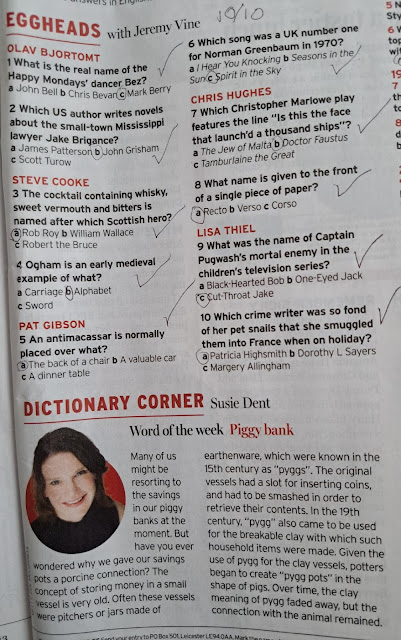 answers in English
EGGHEADS with Jeremy Vine
10/10
OLAV BJORTOMT
1 What is the real name of the
Happy Mondays' dancer Bez?
a John Bell b Chris Bevan c Mark Berry
2 Which US author writes novels
about the small-town Mississippi
lawyer Jake Brigance?
a James Patterson b John Grisham
c Scott Turow
STEVE COOKE
3 The cocktail containing whisky,
sweet vermouth and bitters is
named after which Scottish hero?
a Rob Roy b William Wallace
c Robert the Bruce
4 Ogham is an early medieval
example of what?
a Carriage b Alphabet
c Sword
PAT GIBSON
5 An antimacassar is normally
placed over what?
a The back of a chair b A valuable car
c A dinner table
6 Which song was a UK number one
for Norman Greenbaum in 1970?
a I Hear You Knocking b Seasons in the
Sun c Spirit in the Sky
CHRIS HUGHES
7 Which Christopher Marlowe play
features the line "Is this the face
that launch'd a thousand ships"?
a The Jew of Malta b Doctor Faustus
c Tamburlaine the Great
8 What name is given to the front
of a single piece of paper?
a Recto b Verso c Corso
LISA THIEL
9 What was the name of Captain
Pugwash's mortal enemy in the
children's television series?
a Black-Hearted Bob b One-Eyed Jack
c Cut-Throat Jake
10 Which crime writer was so fond
of her pet snails that she smuggled
them into France when on holiday?
a Patricia Highsmith b Dorothy L Sayers
c Margery Allingham
DICTIONARY CORNER Susie Dent
Word of the week Piggy bank
Many of us
might be
resorting to
the savings
in our piggy
banks at the
moment. But
have you ever
wondered why we gave our savings
pots a porcine connection? The
concept of storing money in a small
vessel is very old. Often these vessels
were pitchers or jars made of
earthenware, which were known in the
15th century as "pyggs". The original
vessels had a slot for inserting coins,
and had to be smashed in order to
retrieve their contents. In the 19th
century, "pygg" also came to be used
for the breakable clay with which such
household items were made. Given the
use of pygg for the clay vessels, potters
began to create "pygg pots" in the
shape of pigs. Over time, the clay
meaning of pygg faded away, but the
connection with the animal remained.
send your entry to PO Box 501, Leicester LE94 0AA. Mark the